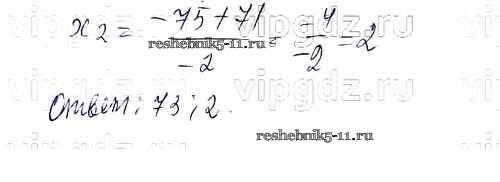 x₂ = (-75 + 71)/(-2) = (-4)/(-2) = 2
reshebnik5-11.ru
Ответ: 73; 2.
reshebnik5-11.ru
vipgdz.ru